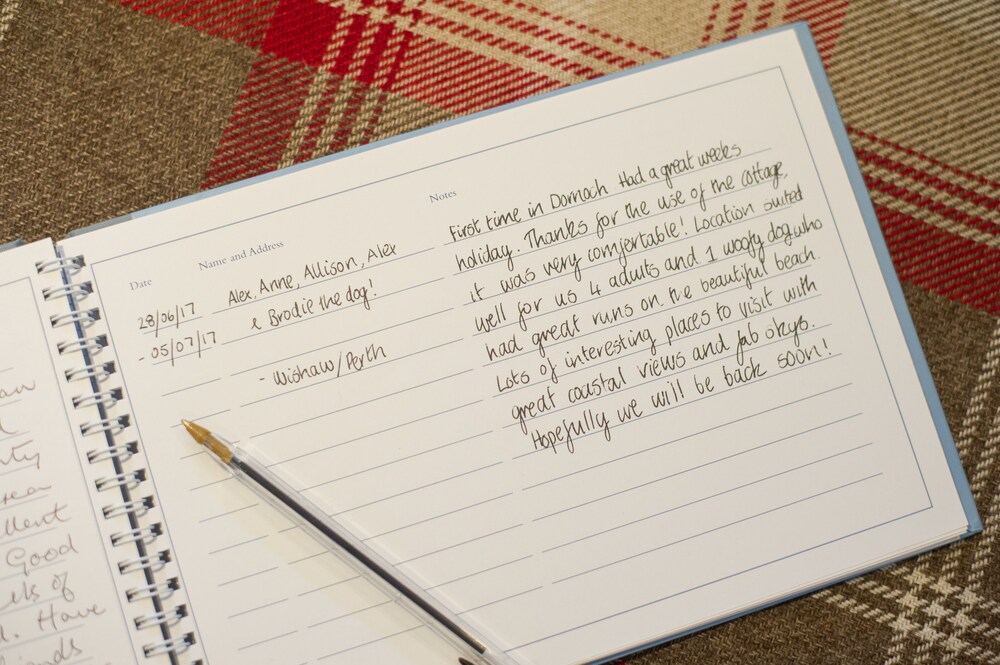 aw
ty
llent
Good
ls of
d. Have
nds
Date
Name and Address
Notes
28/06/17
- 05/07/17
Alex, Anne, Allison, Alex
& Brodie the dog!
- Wishaw/Perth
First time in Dornoch Had a great weeks
holiday. Thanks for the use of the cottage,
it was very comfortable! Location suited
well for us 4 adults and 1 woofy dog who
had great runs on the beautiful beach.
Lots of interesting places to visit with
great coastal views and fab skys.
Hopefully we will be back soon!